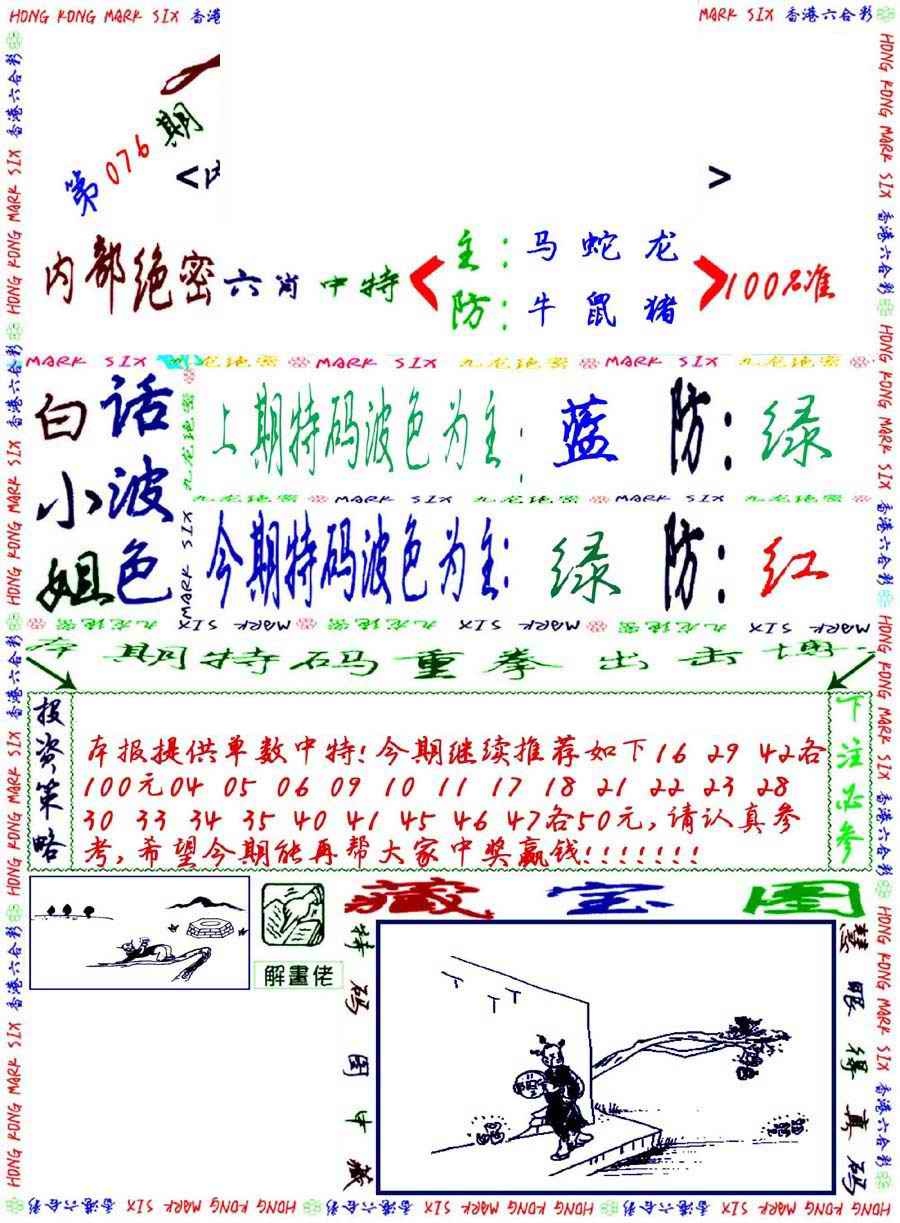 HONG KONG MARK SIX 香港
MARK SIX 香港六合彩
第076期
< >
内部绝密六肖中特
主:马蛇龙
防:牛鼠猪
100%准
MARK SIX 九龙绝密 MARK SIX 九龙绝密 MARK SIX 九龙绝密
白小姐
话波色
上期特码波色为主: 蓝 防: 绿
九龙绝密 MARK SIX 九龙绝密 MARK SIX
今期特码波色为主: 绿 防: 红
MARK SIX 九龙绝密 MARK SIX 九龙绝密 MARK SIX
期特码重拳出击
投资策略
本报提供单数中特!今期继续推荐如下16 29 42各
100元04 05 06 09 10 11 17 18 21 22 23 28
30 33 34 35 40 41 45 46 47各50元,请认真参
考,希望今期能再帮大家中奖赢钱!!!!!!!
下注必参
解畫佬
藏宝图
特码图中藏
慧眼得真码
HONG KONG MARK SIX 香港六合彩 HONG KONG MARK SIX 香港六合彩